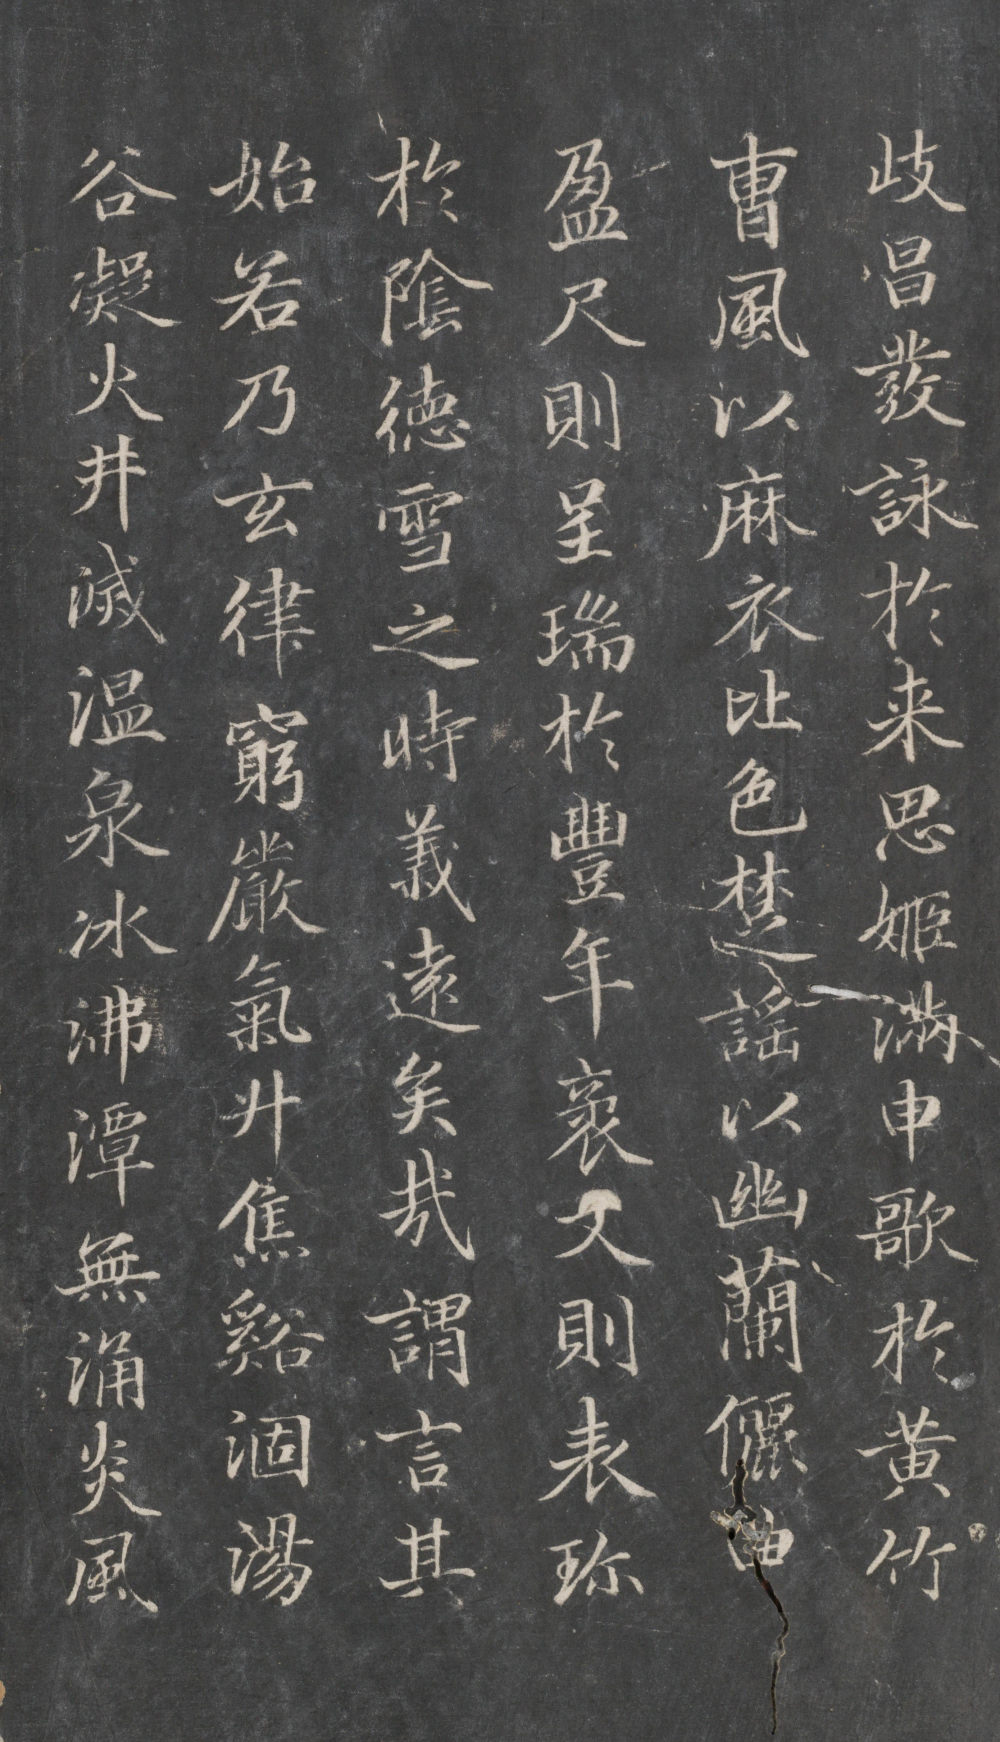 歧昌發詠於来思姬滿申歌於黄竹
曺風以麻衣比色楚謡以幽蘭儷曲
盈尺則呈瑞於豐年袤丈則表珎
於陰德雪之時義遠矣㢤謂言其
始若乃玄律窮嚴氣升焦谿涸湯
谷凝火井滅温泉冰沸潭無涌炎風